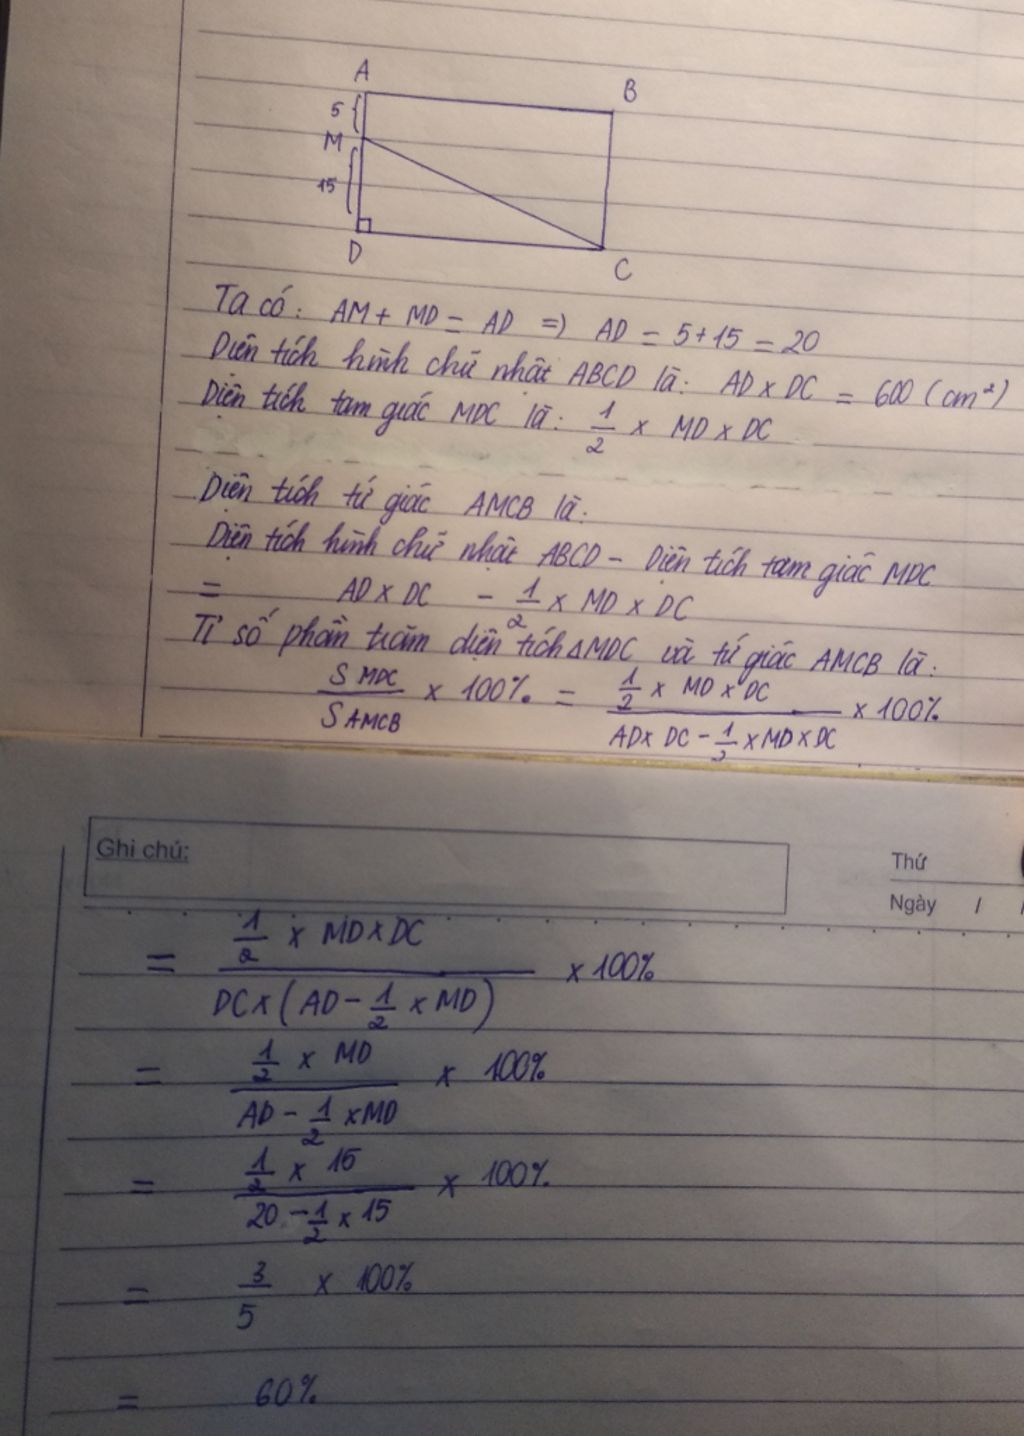 A
B
5
M
15
D
C
Ta có: AM + MD = AD => AD = 5 + 15 = 20
Diện tích hình chữ nhật ABCD là: AD x DC = 600 (cm²)
Diện tích tam giác MDC là: 1/2 x MD x DC
Diện tích tứ giác AMCB là:
Diện tích hình chữ nhật ABCD - Diện tích tam giác MDC
= AD x DC - 1/2 x MD x DC
Tỉ số phần trăm diện tích ΔMDC và tứ giác AMCB là:
S MDC / S AMCB x 100% = (1/2 x MD x DC) / (AD x DC - 1/2 x MD x DC) x 100%
Ghi chú:
Thứ
Ngày / /
= (1/2 x MD x DC) / (DC x (AD - 1/2 x MD)) x 100%
= (1/2 x MD) / (AD - 1/2 x MD) x 100%
= (1/2 x 15) / (20 - 1/2 x 15) x 100%
= 3/5 x 100%
= 60%